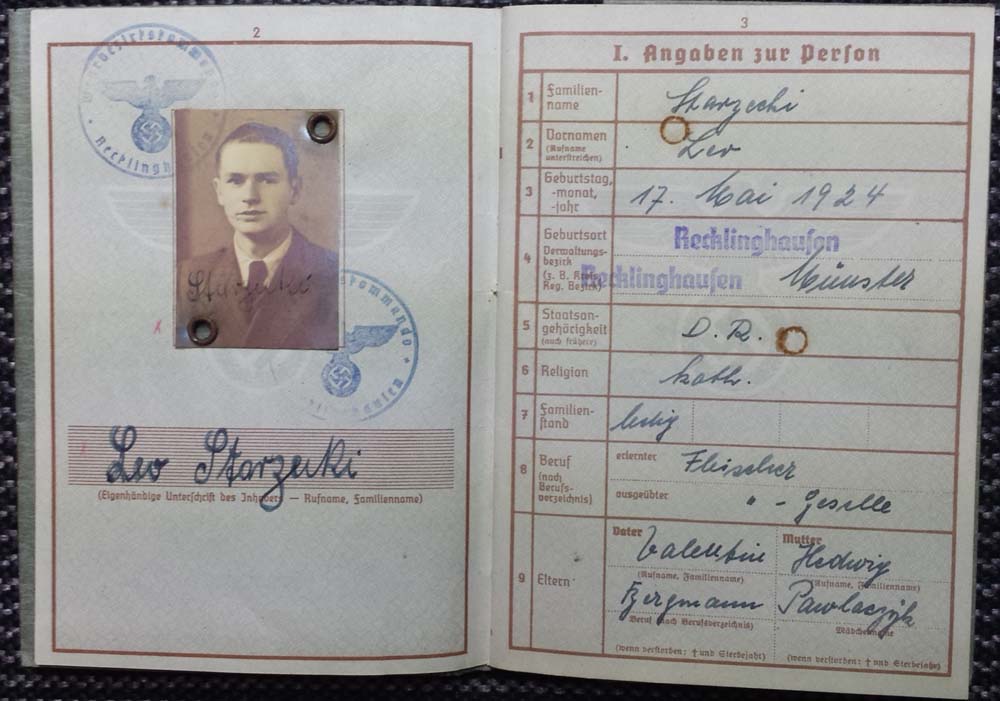 2
Wehrbezirkskommando
Recklinghausen
Leo Starzecki
(Eigenhändige Unterschrift des Inhabers — Rufname, Familienname)
3
I. Angaben zur Person
1 Familien-
name Starzecki
2 Vornamen Leo
(Rufname
unterstreichen)
3 Geburtstag, 17. Mai 1924
-monat,
-jahr
4 Geburtsort Recklinghausen
Verwaltungs-
bezirk
(z. B. Kreis, Recklinghausen Münster
Reg. Bezirk)
5 Staatsan- D. R.
gehörigkeit
(auch frühere)
6 Religion kath.
7 Familien- ledig
stand
8 Beruf erlernter Fleischer
(nach
Berufs-
verzeichnis) ausgeübter " - Geselle
9 Eltern
Vater Mutter
Valentin Hedwig
(Rufname, Familienname) (Rufname, Familienname)
Bergmann Pawlaczyk
Beruf (nach Berufsverzeichnis) Mädchenname
(wenn verstorben: † und Sterbejahr) (wenn verstorben: † und Sterbejahr)